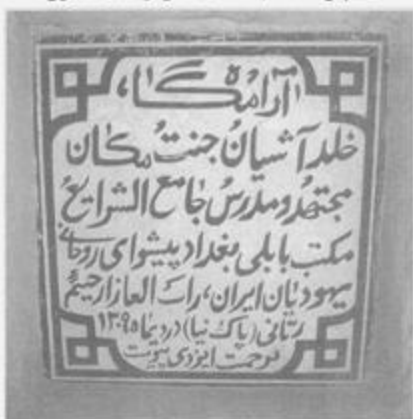 آرامگاه
خلد آشیان جنت مکان
مجتهد و مدرس جامع الشرایع
مکتب بابلی بغداد پیشوای روحانی
یهودیان ایران، راب العازار حییم
ربانی (پاک نیا) در دیماه ۱۳۰۹
برحمت ایزدی پیوست